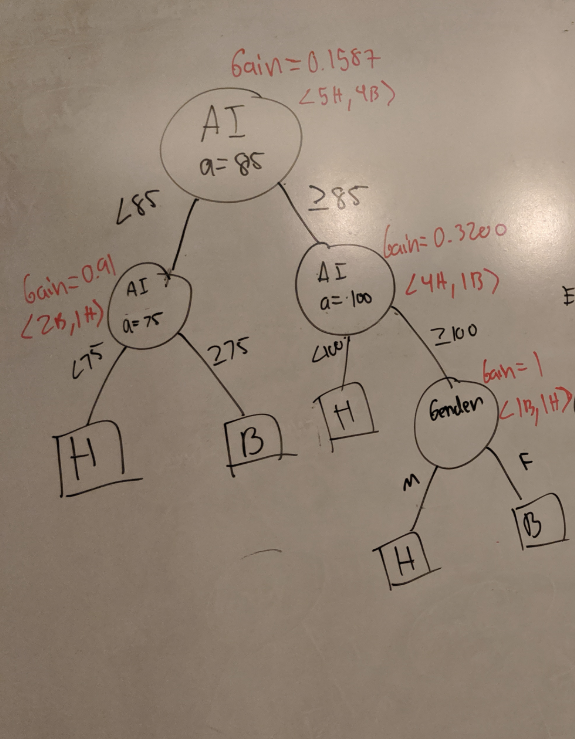 Gain=0.1587
<5H,4B>
AI
a=85
<85
≥85
Gain=0.91
<2B,1H>
AI
a=75
Gain=0.3200
<4H,1B>
AI
a=100
<75
≥75
<100
≥100
H
B
H
Gain=1
<1B,1H>
Gender
M
F
H
B